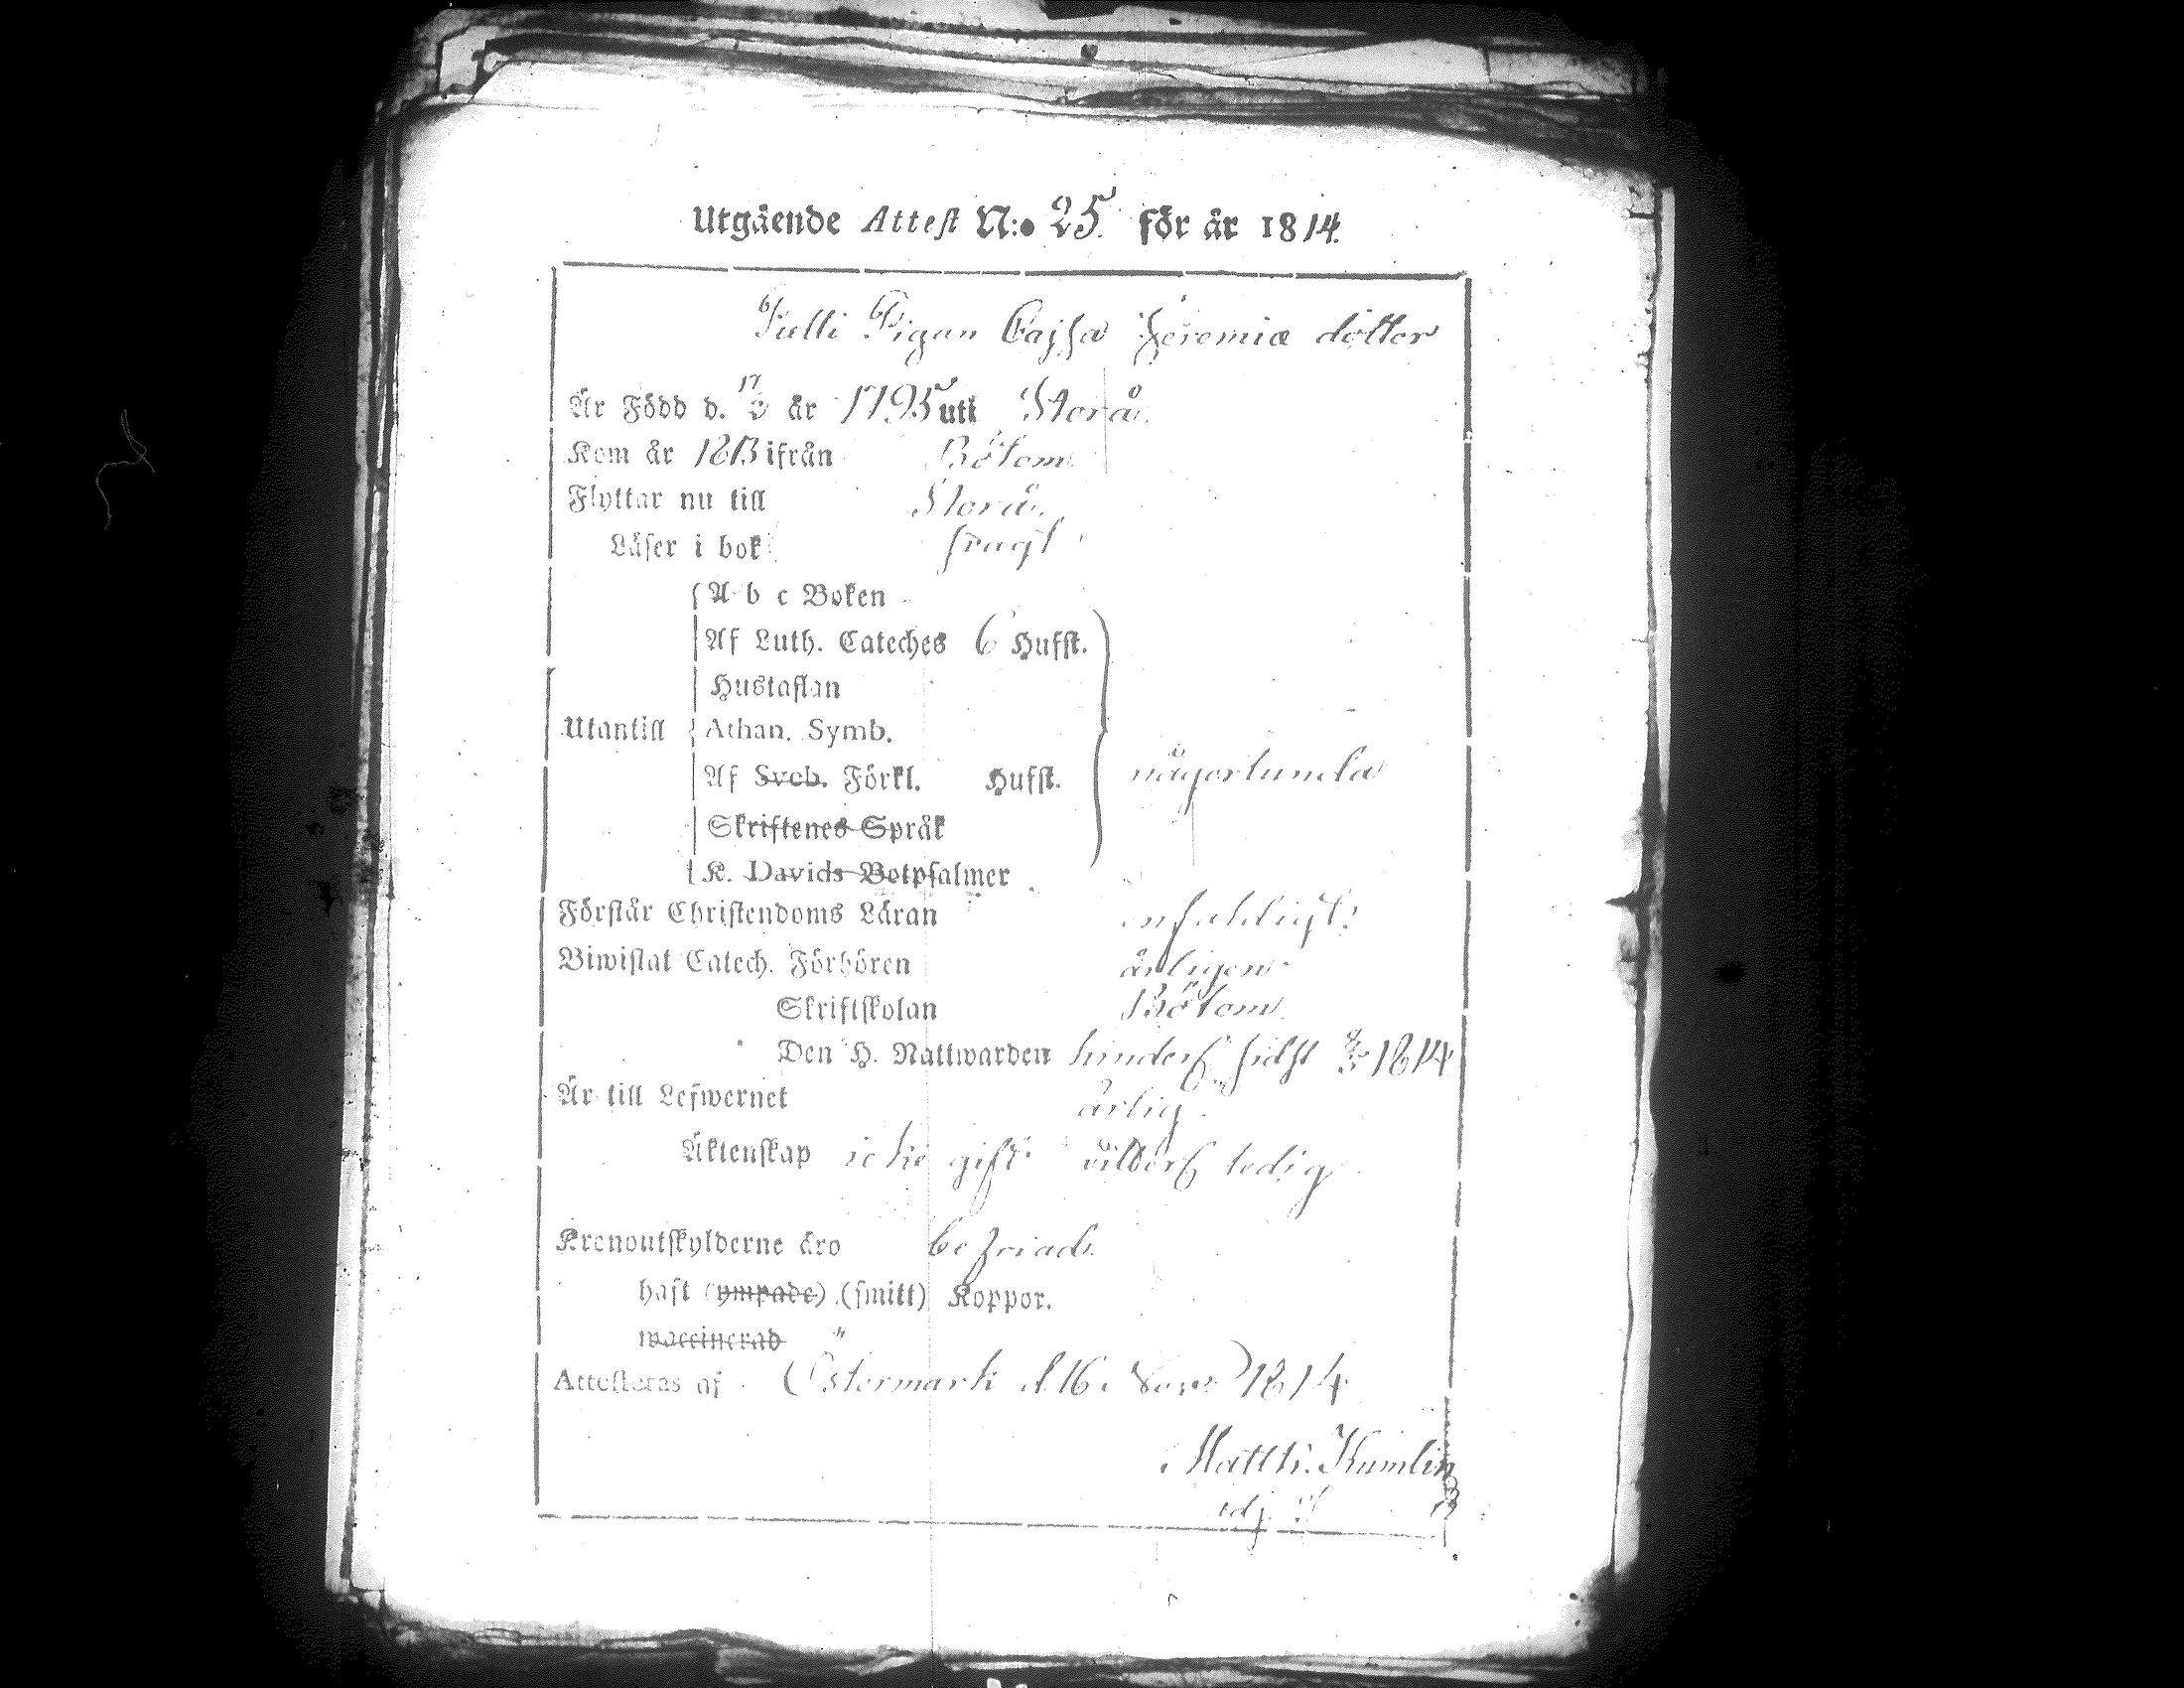 Utgående Attest N:o 25. för år 1814.
Pigan Cajsa Jeremiæ dotter
Är Född d. 17/2 år 1795 uti Storå.
Kom år 1813 ifrån Bötom
Flyttar nu till Storå.
Läser i bok svagt
A b c Boken
Af Luth. Cateches 6 Hufst.
Hustaflan
Utantill Athan. Symb.
Af Sveb. Förkl. Hufst. någorlunda
Skriftenes Språk
K. Davids Botpsalmer
Förstår Christendoms Läran enfaldigt.
Biwistat Catech. Förhören årligen
Skriftskolan Bötom
Den H. Nattwarden sidst 1814
Är till Lefwernet ärlig.
Äktenskap icke gift ledig
Kronoutskylderne äro
haft (ympade) (smitt) Koppor.
waccinerad "
Attesteras af Östermark d 16 Nov. 1814
Matth. Kumlin
adj.